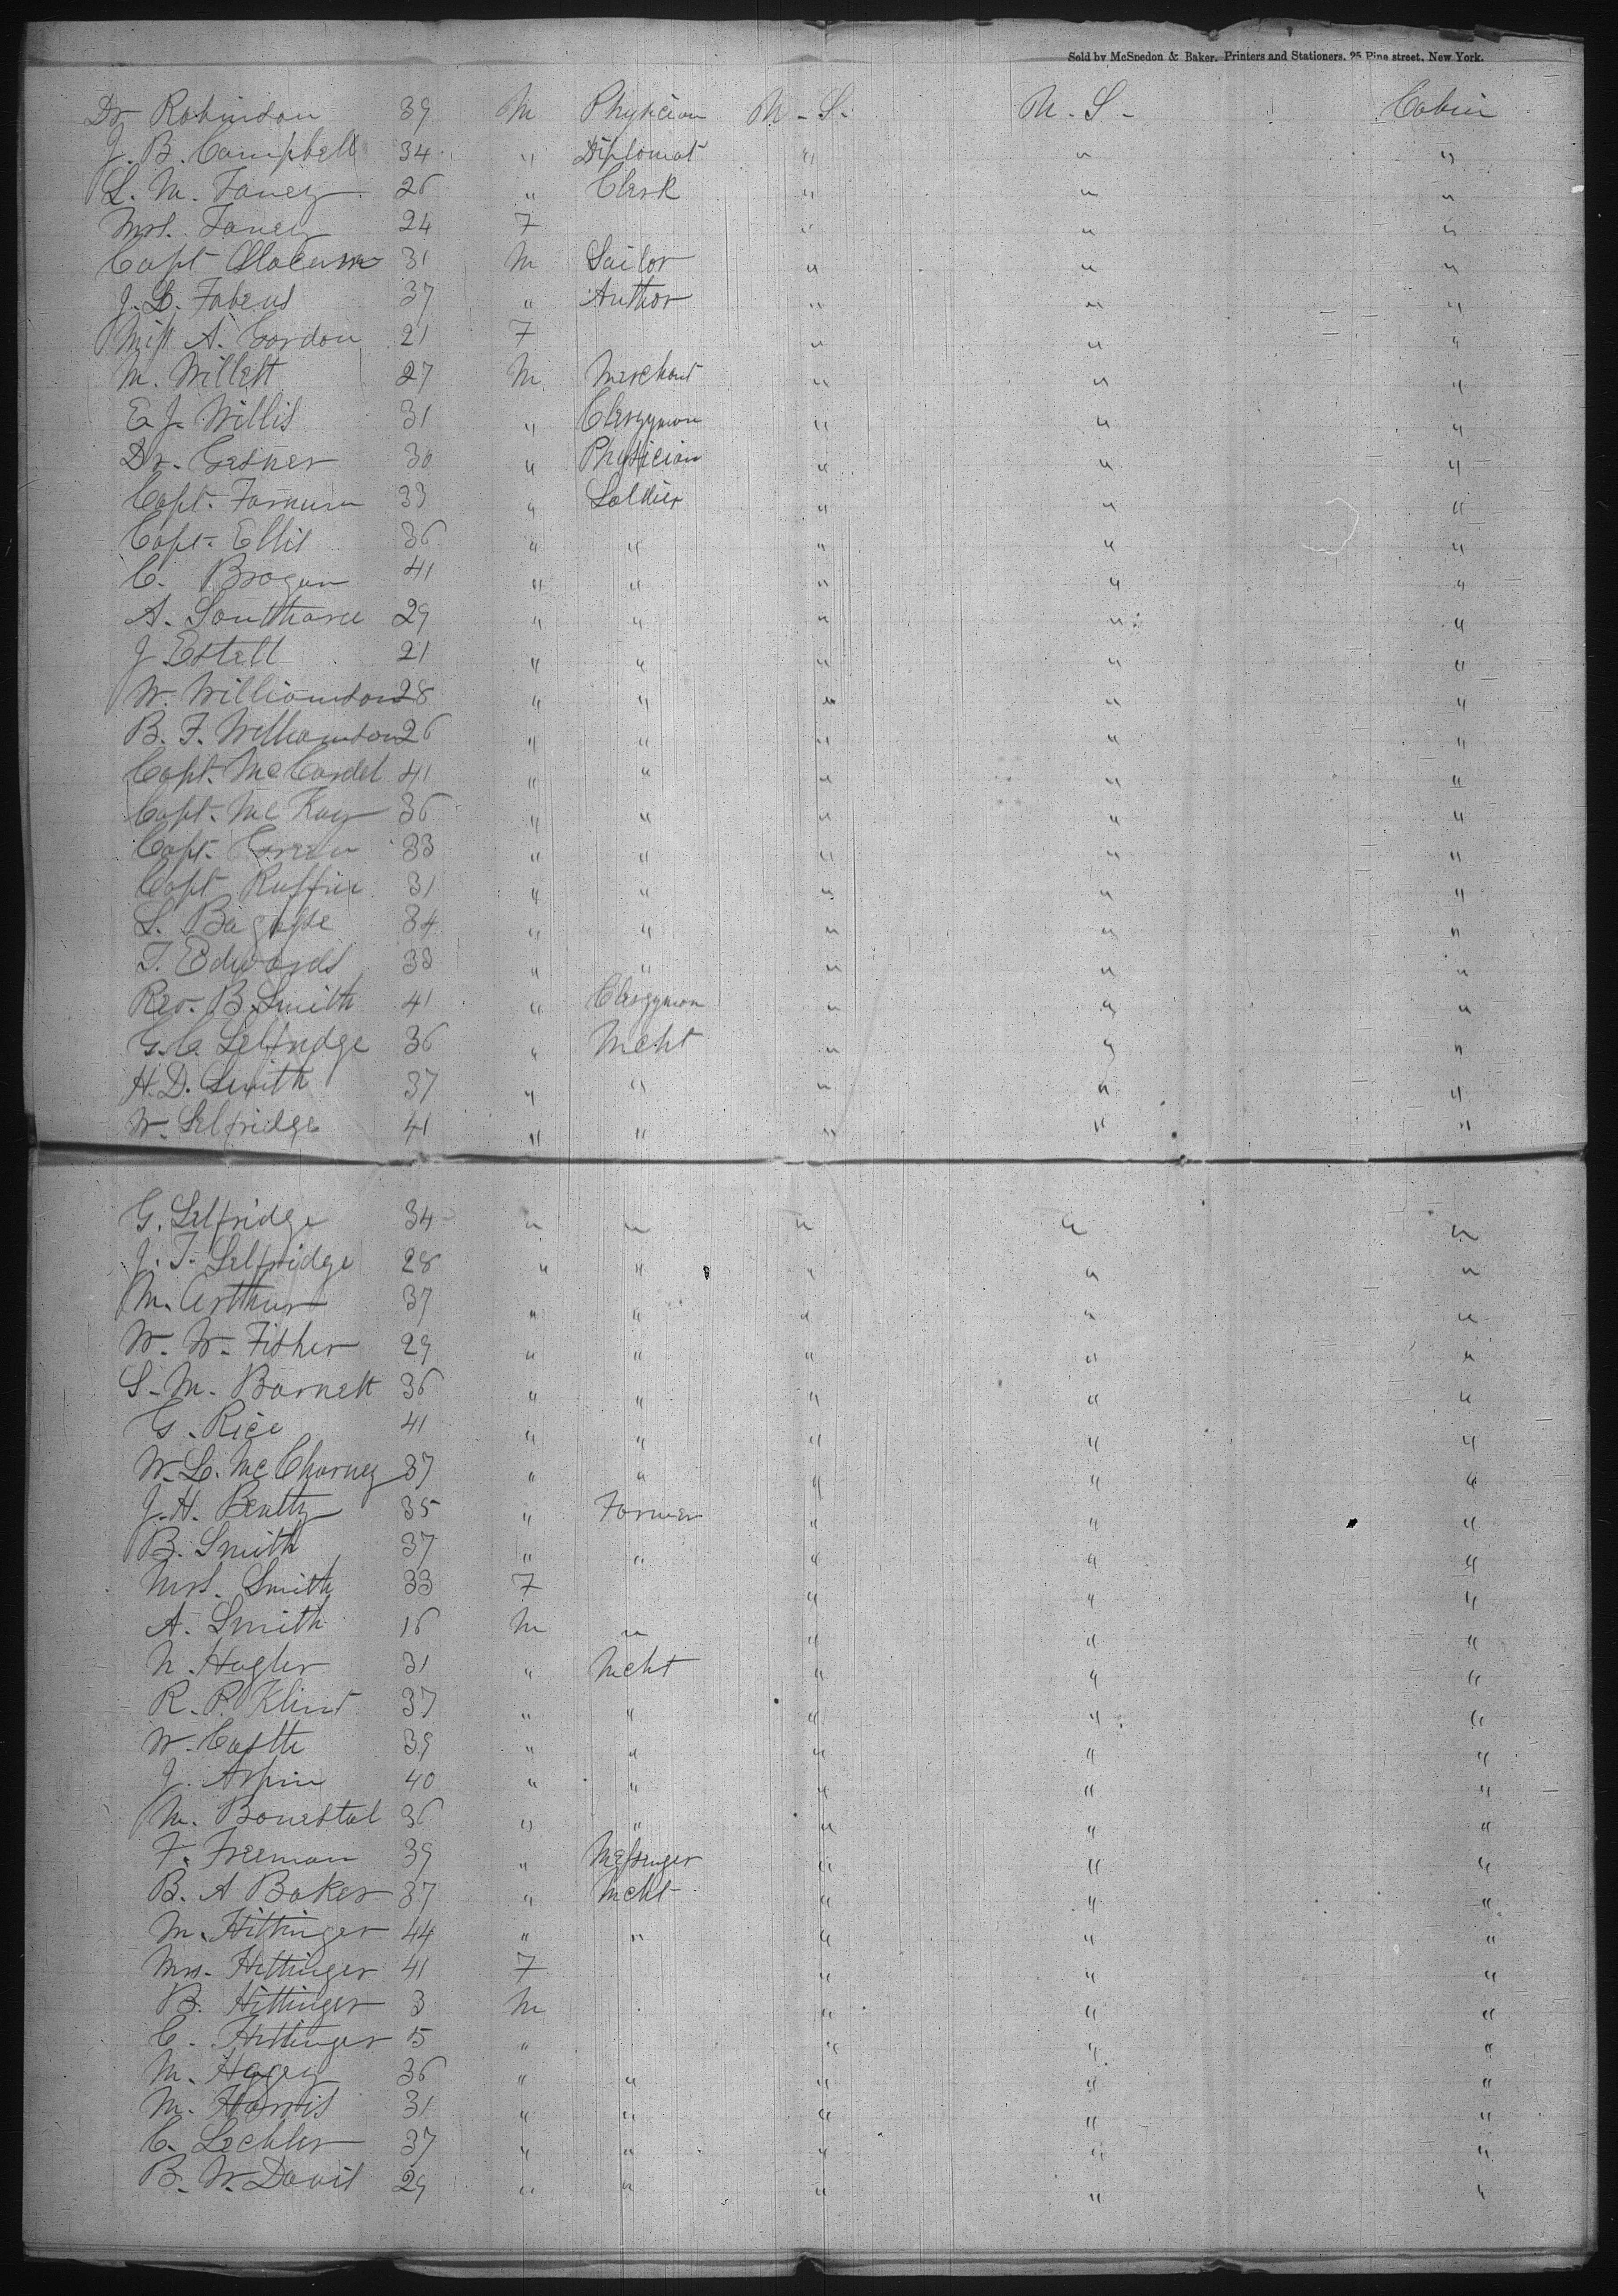 Sold by McSpedon & Baker, Printers and Stationers, 25 Pine street, New York.
Dr Robinson 39 M Physician U. S. U. S. Cabin
J. B. Campbell 34 " Diplomat " " "
L. M. Faney 26 " Clerk " " "
Mrs. Faney 24 F " " "
Capt Slocum 31 M Sailor " " "
J. L. Fabens 37 " Author " " "
Miss A. Gordon 21 F " " "
M. Willett 27 M Merchant " " "
E. J. Willis 31 " Clergyman " " "
Dr. Gesner 30 " Physician " " "
Capt. Farnum 33 " Soldier " " "
Capt. Ellis 36 " " " " "
C. Brogan 41 " " " " "
A. Southard 29 " " " " "
J Estell 21 " " " " "
W. Williamson 28 " " " " "
B. F. Williamson 26 " " " " "
Capt. McCardel 41 " " " " "
Capt. Mc Kay 36 " " " " "
Capt. Green 33 " " " " "
Capt Ruffin 31 " " " " "
L. 34 " " " " "
T. Edwards 33 " " " " "
Rev. B. Smith 41 " Clergyman " " "
G. C. Selfridge 36 " Mcht " " "
H. D. Smith 37 " " " " "
W. Selfridge 41 " " " " "
G. Selfridge 34 " " " " "
J. T. Selfridge 28 " " " " "
M. Arthur 37 " " " " "
W. W. Fisher 29 " " " " "
S. M. Barnett 36 " " " " "
G. Rice 41 " " " " "
W. L. McCharney 37 " " " " "
J. H. Beatty 35 " Farmer " " "
B. Smith 37 " " " " "
Mrs. Smith 33 F " " "
A. Smith 16 M " " " "
N. Hagler 31 " Mcht " " "
R. P. Klint 37 " " " " "
W. Castle 39 " " " " "
J. Aspin 40 " " " " "
M. Bonestal 36 " " " " "
F. Freeman 39 " Messenger " " "
B. A Baker 37 " Mcht " " "
M. Hittinger 44 " " " " "
Mrs. Hittinger 41 F " " "
B. Hittinger 3 M " " "
C. Hittinger 5 " " " "
M. Hagey 36 " " " " "
M. Harris 31 " " " " "
C. Lechler 37 " " " " "
B. W. Davis 29 " " " " "